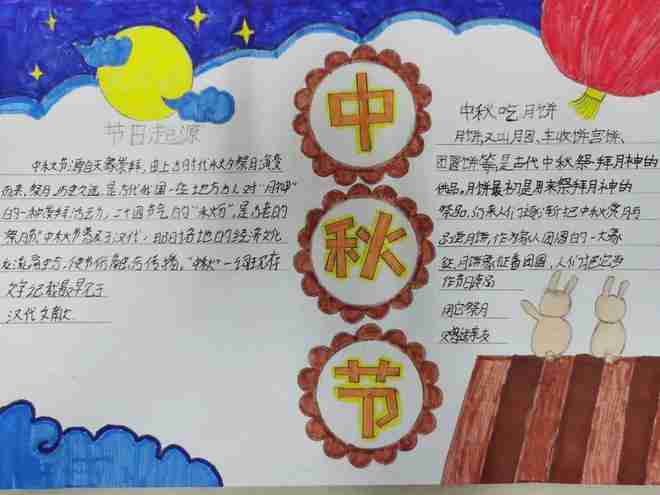 节日起源
中秋节源自天象崇拜,由上古时代秋夕祭月演变
而来。祭月,历史久远,是古代我国一些地方古人对“月神”
的一种崇拜活动,二十四节气的“秋分”,是古老的
“祭月节”中秋节普及于汉代,
文字记载最早见于
汉代文献
中
秋
节
中秋吃月饼
月饼又叫月团、丰收饼、宫饼、
团圆饼等,是古代中秋祭拜月神的
供品。月饼最初是用来祭拜月神的
祭品,后来人们逐渐把中秋赏月与
品尝月饼,作为家人团圆的一大象
征,月饼象征着团圆,人们把它当
作节日食品
用它祭月
赠送亲友